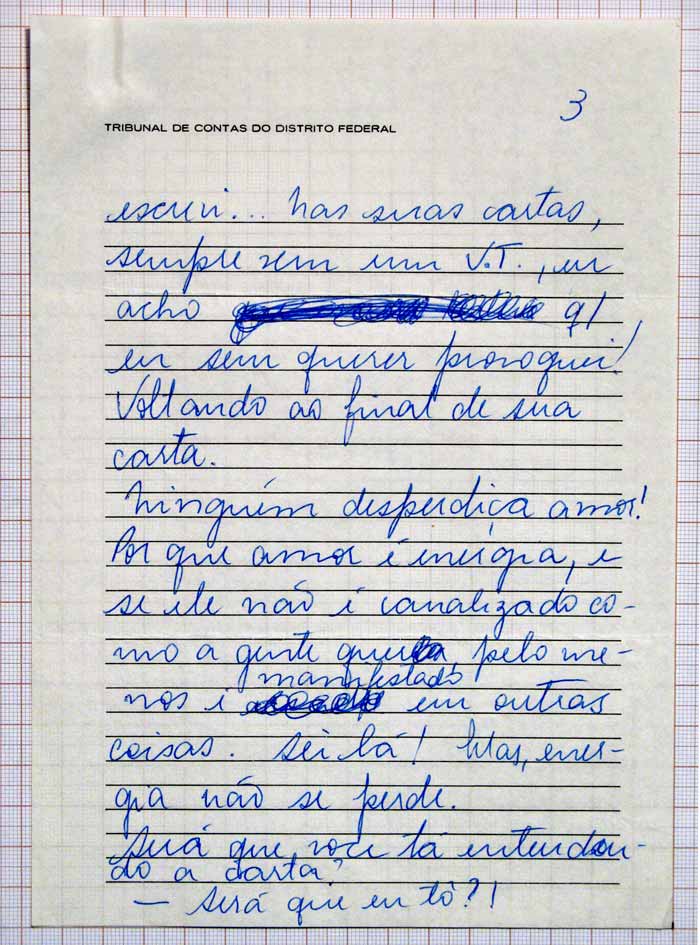 3
TRIBUNAL DE CONTAS DO DISTRITO FEDERAL
escrevi... Nas suas cartas,
sempre vem um V.T., eu
acho q/
eu sem querer provoquei!
Voltando ao final de sua
carta.
Ninguém desperdiça amor!
Por que amor é energia, e
se ele não é canalizado co-
mo a gente queria, pelo me-
manifestado
nos é em outras
coisas. Sei lá! Mas, ener-
gia não se perde.
Será que você tá entenden-
do a carta?
— Será que eu tô?!